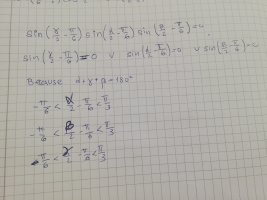 sin(γ/2 - π/6) sin(α/2 - π/6) sin(β/2 - π/6) = 0
sin(γ/2 - π/6) = 0 ∨ sin(α/2 - π/6) = 0 ∨ sin(β/2 - π/6) = 0
Because α + γ + β = 180°
-π/6 < α/2 - π/6 < π/3
-π/6 < β/2 - π/6 < π/3
-π/6 < γ/2 - π/6 < π/3